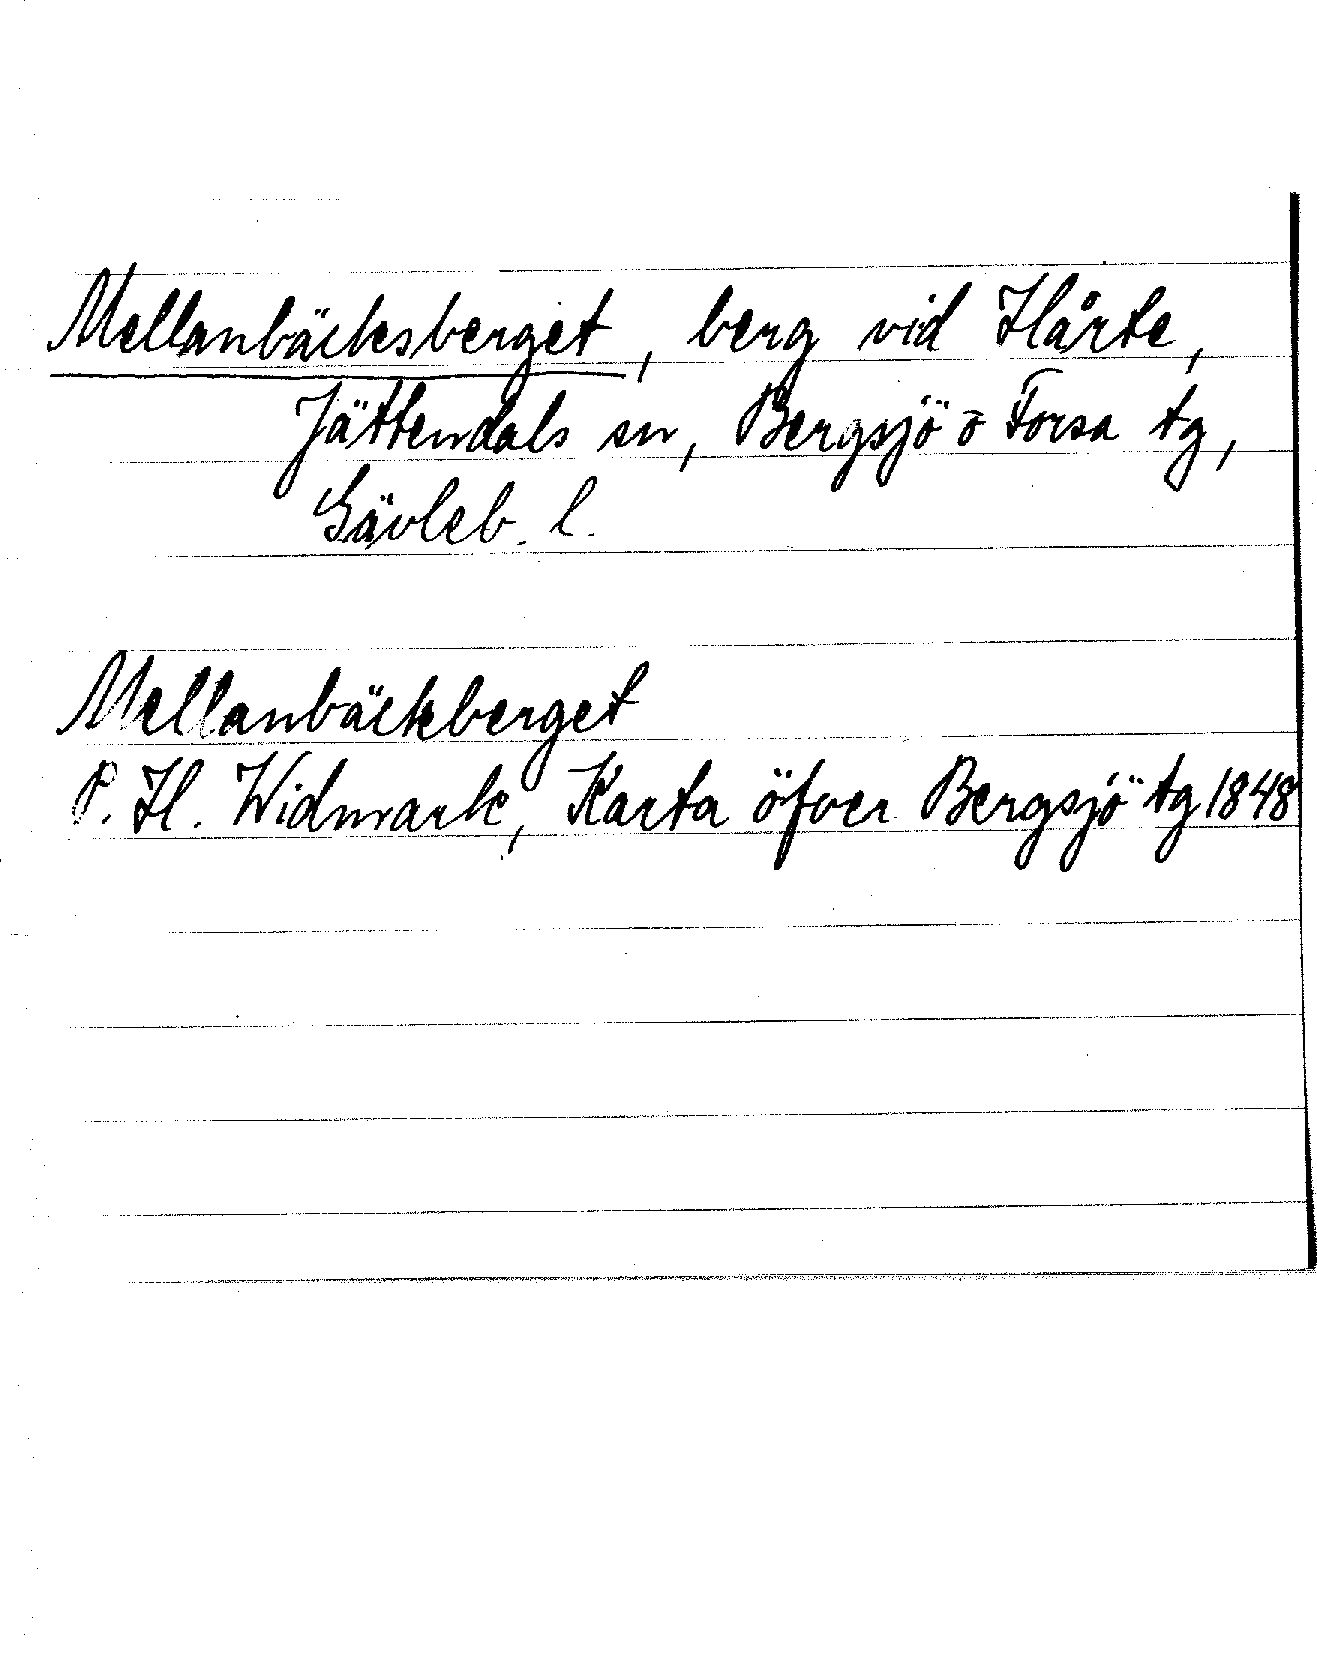 Mellanbäcksberget, berg vid Hårte,
Jättendals sn, Bergsjö o Forsa tg,
Gävleb. l.
Mellanbäckberget
P. H. Widmark, Karta öfver Bergsjö tg 1848